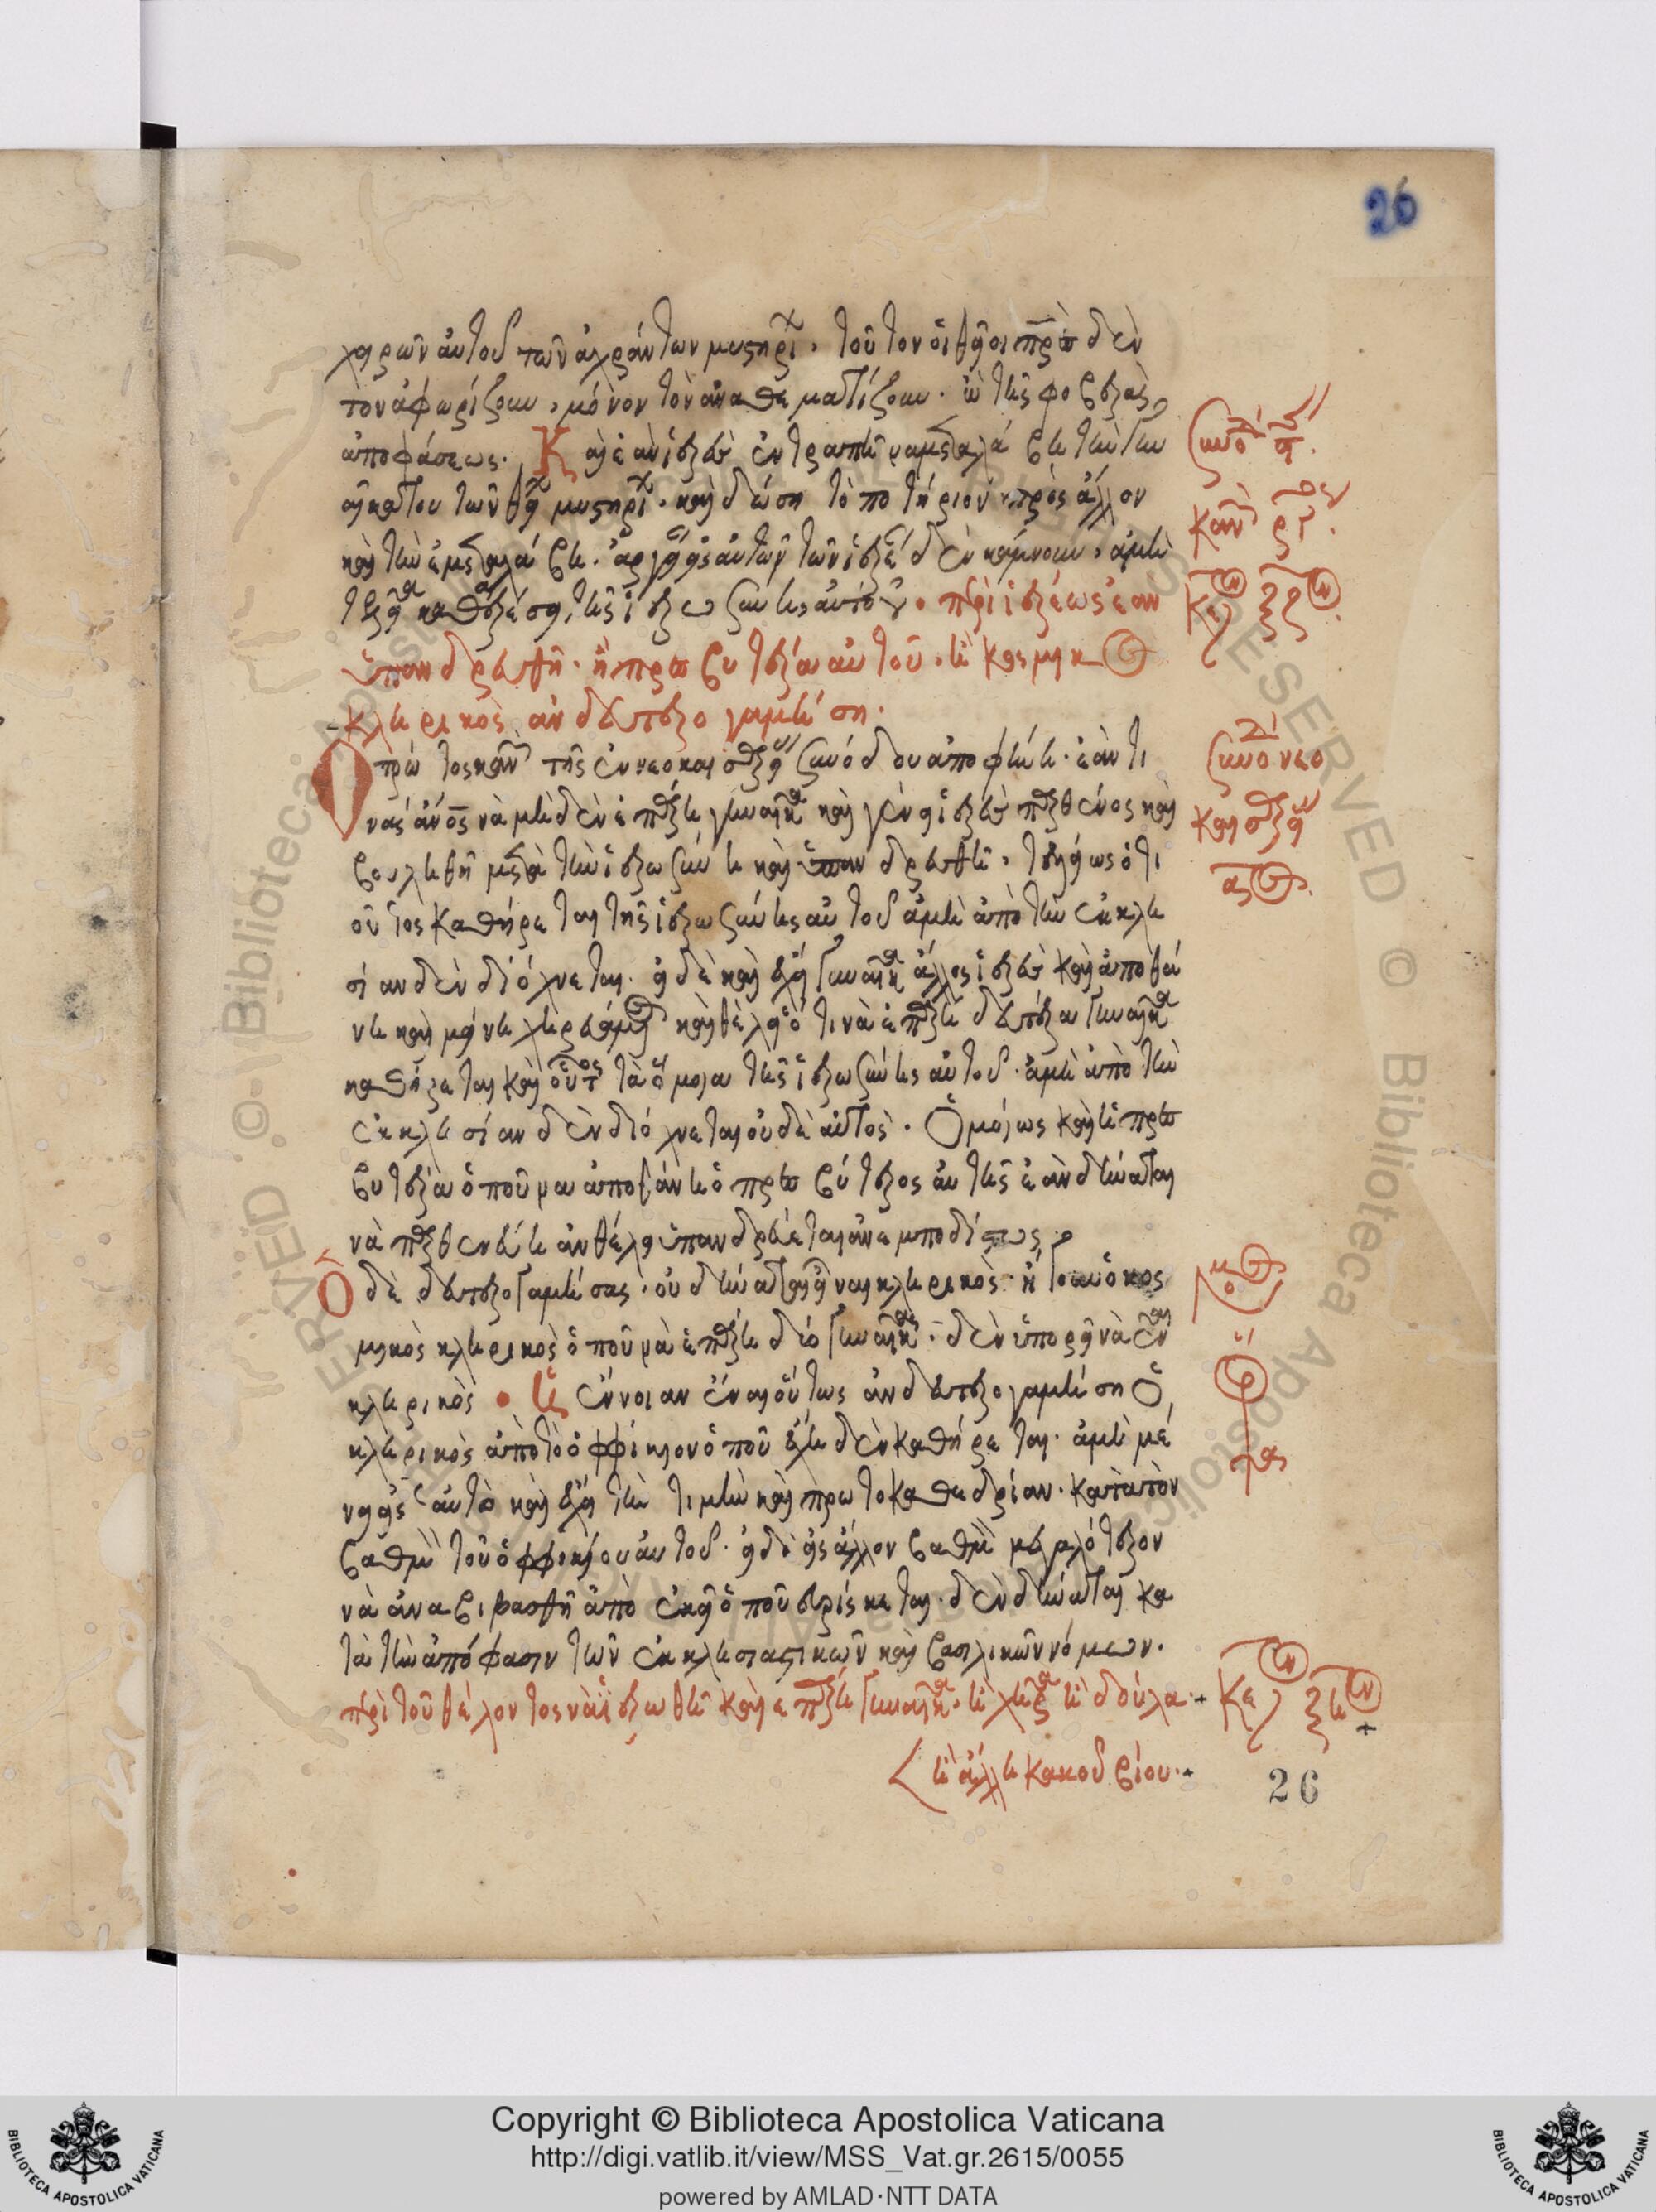 26
χειρῶν αὐτοῦ τῶν ἀχράντων μυστηρί. τοῦτον οἱ θεῖοι πρς δὲν
τὸν ἀφωρίζουν, μόνον τὸν ἀναθεματίζουν. ὢ τῆς φοβερᾶς
ἀποφάσεως. Καὶ ἐὰν ἱερεὺς ἐντραπῆ να μεταλάβη τὴν γυ
αῖκα του τῶν θεί μυστηρί. καὶ δώση τὸ ποτήριον πρὸς ἄλλον
καὶ τὴν ἐμεταλάβη. ἀργ εἰς αὐτὸν τὸν ἱερέα δὲν κάμνουν, ἀμὴ
καθαιρέσει τῆς ἱερωσύνης αὐτόν. περὶ ἱερέως ἐὰν
ὑπανδρευθῆ. ἢ πρεσβυτέρα αὐτοῦ. ἢ κοσμικ
κληρικὸς ἂν δευτερογαμήση.
Ὁ πρῶτος καν τῆς ἐν νεοκαισαρεί συνόδου ἀποφαίνη. ἐάν τι
νας ἄνος νὰ μὴ δὲν ἐπῆρε γυναῖκα καὶ γένει ἱερεὺς παρθένος καὶ
βουληθῆ μετὰ τὴν ἱερωσύνη καὶ ὑπανδρευθῆ, τελείως ὅτι
οὗτος καθήρεται τῆς ἱερωσύνης αὐτοῦ ἀμὴ ἀπὸ τὴν ἐκκλη
σίαν δὲν διόχνεται. εἰ δὲ καὶ ἔχει γυναῖκα ἄλλος ἱερεὺς καὶ ἀποθά
νη καὶ μένη χηρευάμεν καὶ θέλει ὅτι νὰ ἐπῆρε δευτέραν γυναῖκα
καθήρεται καὶ οὗτος τὰ ὅμοια τῆς ἱερωσύνης αὐτοῦ. ἀμὴ ἀπὸ τὴν
ἐκκλησίαν δὲν διόχνεται οὐδὲ αὐτός. Ὁμοίως καὶ ἡ πρεσ
βυτέρα ὁποῦ να ἀποθάνη ὁ πρεσβύτερος αὐτῆς ἐὰν δύναται
νὰ παρθενεύη ἂν θέλει ὑπανδρεύεται ἀνεμποδίστως
Ὁ δὲ δευτερογαμήσας. οὐ δύναται εἶναι κληρικὸς. ἢ γουν ὁ κοσ
μικὸς κληρικὸς ὁποῦ νὰ ἐπῆρε δύο γυναῖκ. δὲν ὑπορεῖ νὰ ἔν
κληρικὸς. Εἰς ἔννοιαν ἔναι οὕτως ἂν δευτερογαμήση ὁ
κληρικὸς ἀπὸ τὸ ὀφφίκιον ὁποῦ ἔχη δὲν καθήρεται. ἀμὴ μέ
νει εἰς αὐτὸ καὶ ἔχει τὴν τιμὴν καὶ πρωτοκαθεδρίαν. κατὰ τὸν
βαθμὸ τοῦ ὀφφικίου αὐτοῦ. εἰ δὲ εἰς ἄλλον βαθμὸ μεγαλότερον
νὰ ἀναβιβασθῆ ἀπὸ ἐκεῖ ὁποῦ εὑρίσκεται. δὲν δύναται κα
τὰ τὴν ἀπόφασιν τῶν ἐκκλησιαστικῶν καὶ βασιλικῶν νόμων.
περὶ τοῦ θέλοντος νὰ ἱερωθῆ καὶ ἐπῆρε γυναῖκα. ἢ χήρα ἢ δούλα.
ἢ ἄλλη κακοῦ βίου.
συνο
καν ργ
κε
συνο νεο
καισαρεί
κε
26
Copyright © Biblioteca Apostolica Vaticana
http://digi.vatlib.it/view/MSS_Vat.gr.2615/0055
powered by AMLAD·NTT DATA
BIBLIOTECA APOSTOLICA VATICANA
BIBLIOTECA APOSTOLICA VATICANA